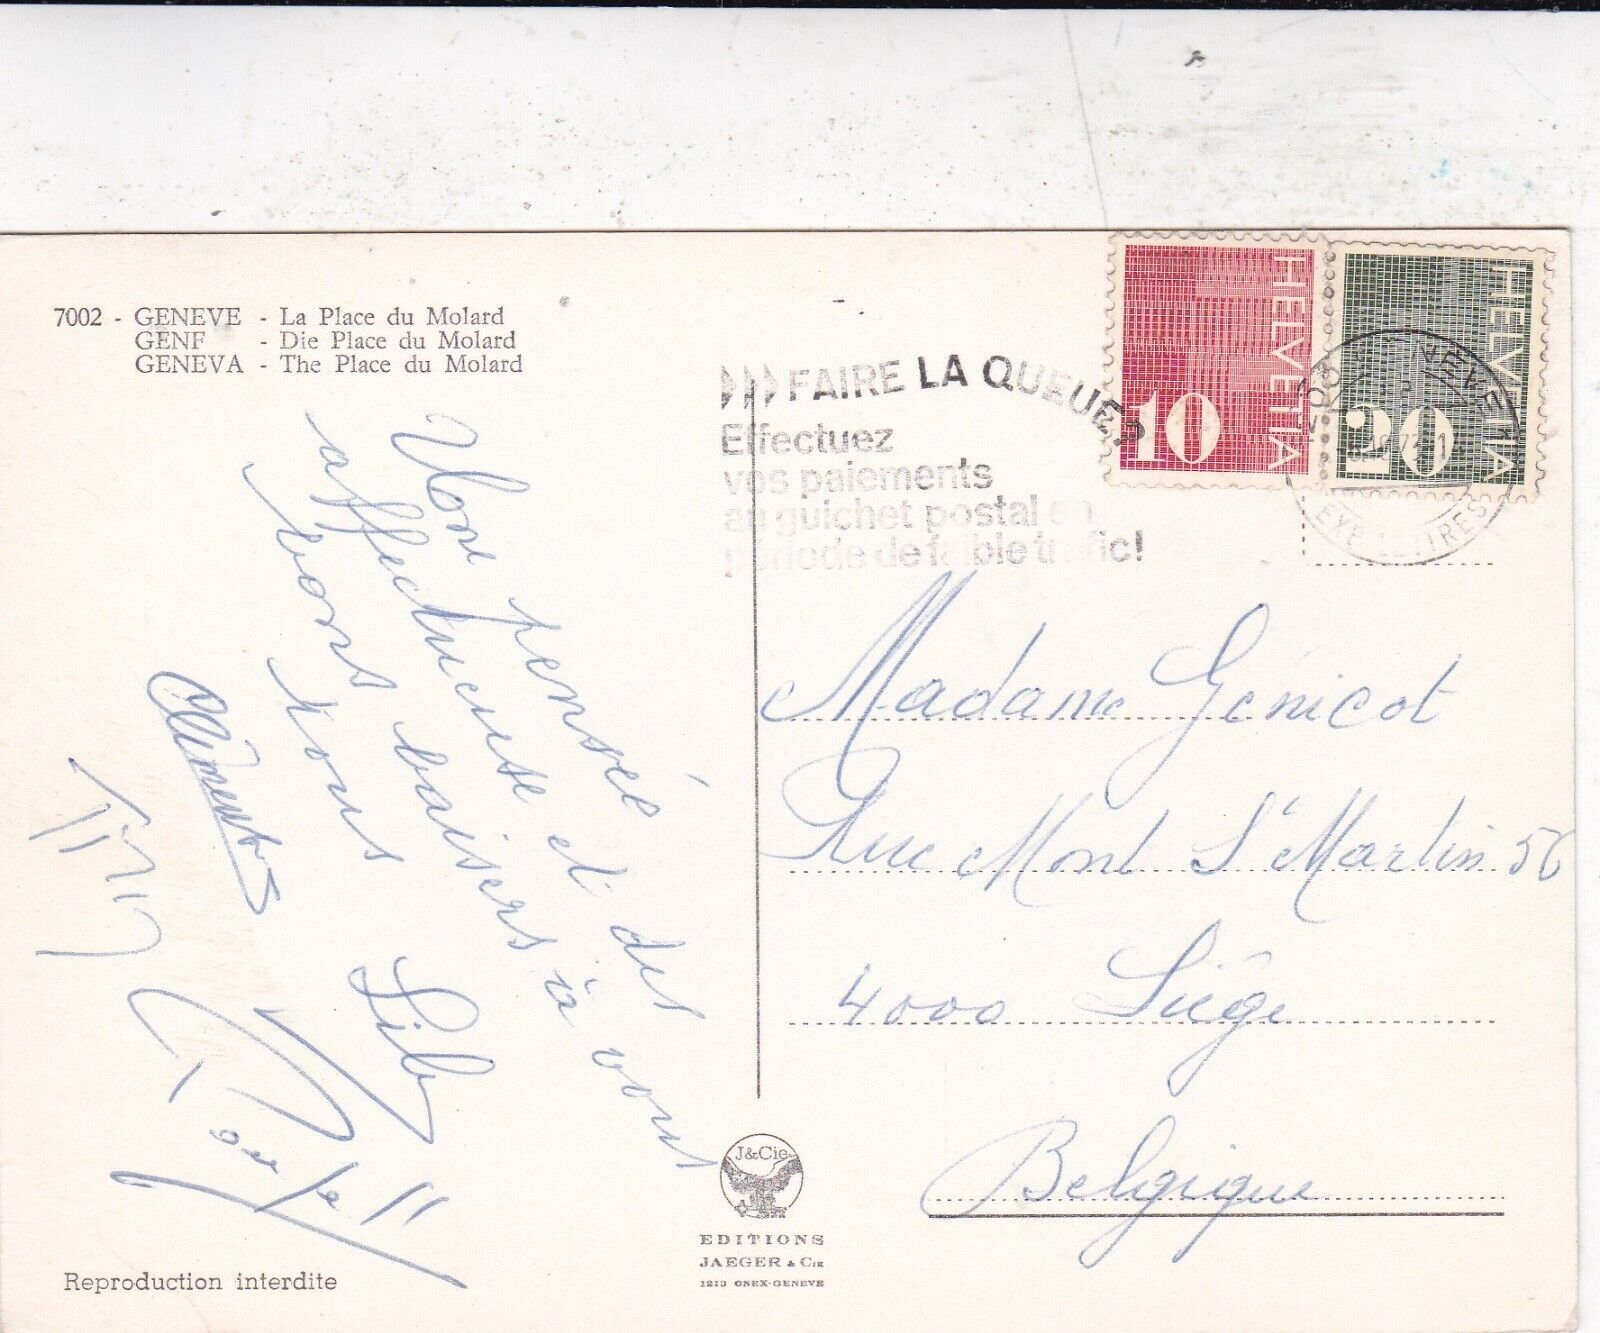 7002 - GENEVE - La Place du Molard
GENF - Die Place du Molard
GENEVA - The Place du Molard
FAIRE LA QUEUE?
Effectuez
vos paiements
au guichet postal en
période de faible trafic!
HELVETIA
10
HELVETIA
20
EXP. LETTRES
pensée
affectueuse et des
bons baisers à vous
tous
Clément
Madame Génicot
Rue Mont St Martin 56
4000 Liège
Belgique
J&Cie
EDITIONS
JAEGER & Cie
1213 ONEX-GENEVE
Reproduction interdite